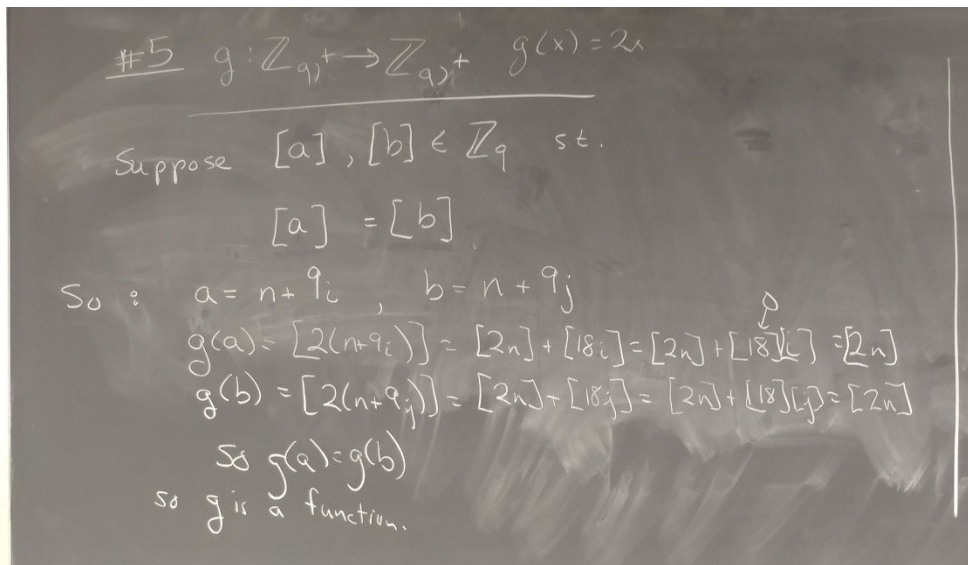 #5 g: ℤ₉,⁺ → ℤ₉,⁺ g(x) = 2x
Suppose [a], [b] ∈ ℤ₉ st.
[a] = [b]
So: a = n + 9i, b = n + 9j
0
g(a) = [2(n+9i)] = [2n] + [18i] = [2n] + [18][i] = [2n]
g(b) = [2(n+9j)] = [2n] + [18j] = [2n] + [18][j] = [2n]
so g(a) = g(b)
so g is a function.